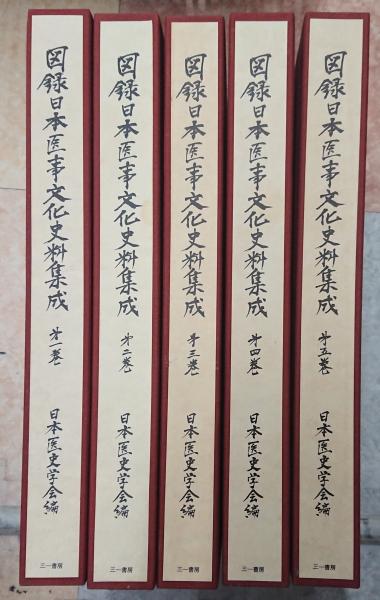 図録日本医事文化史料集成
第一巻
日本医史学会編
三一書房
図録日本医事文化史料集成
第二巻
日本医史学会編
三一書房
図録日本医事文化史料集成
第三巻
日本医史学会編
三一書房
図録日本医事文化史料集成
第四巻
日本医史学会編
三一書房
図録日本医事文化史料集成
第五巻
日本医史学会編
三一書房